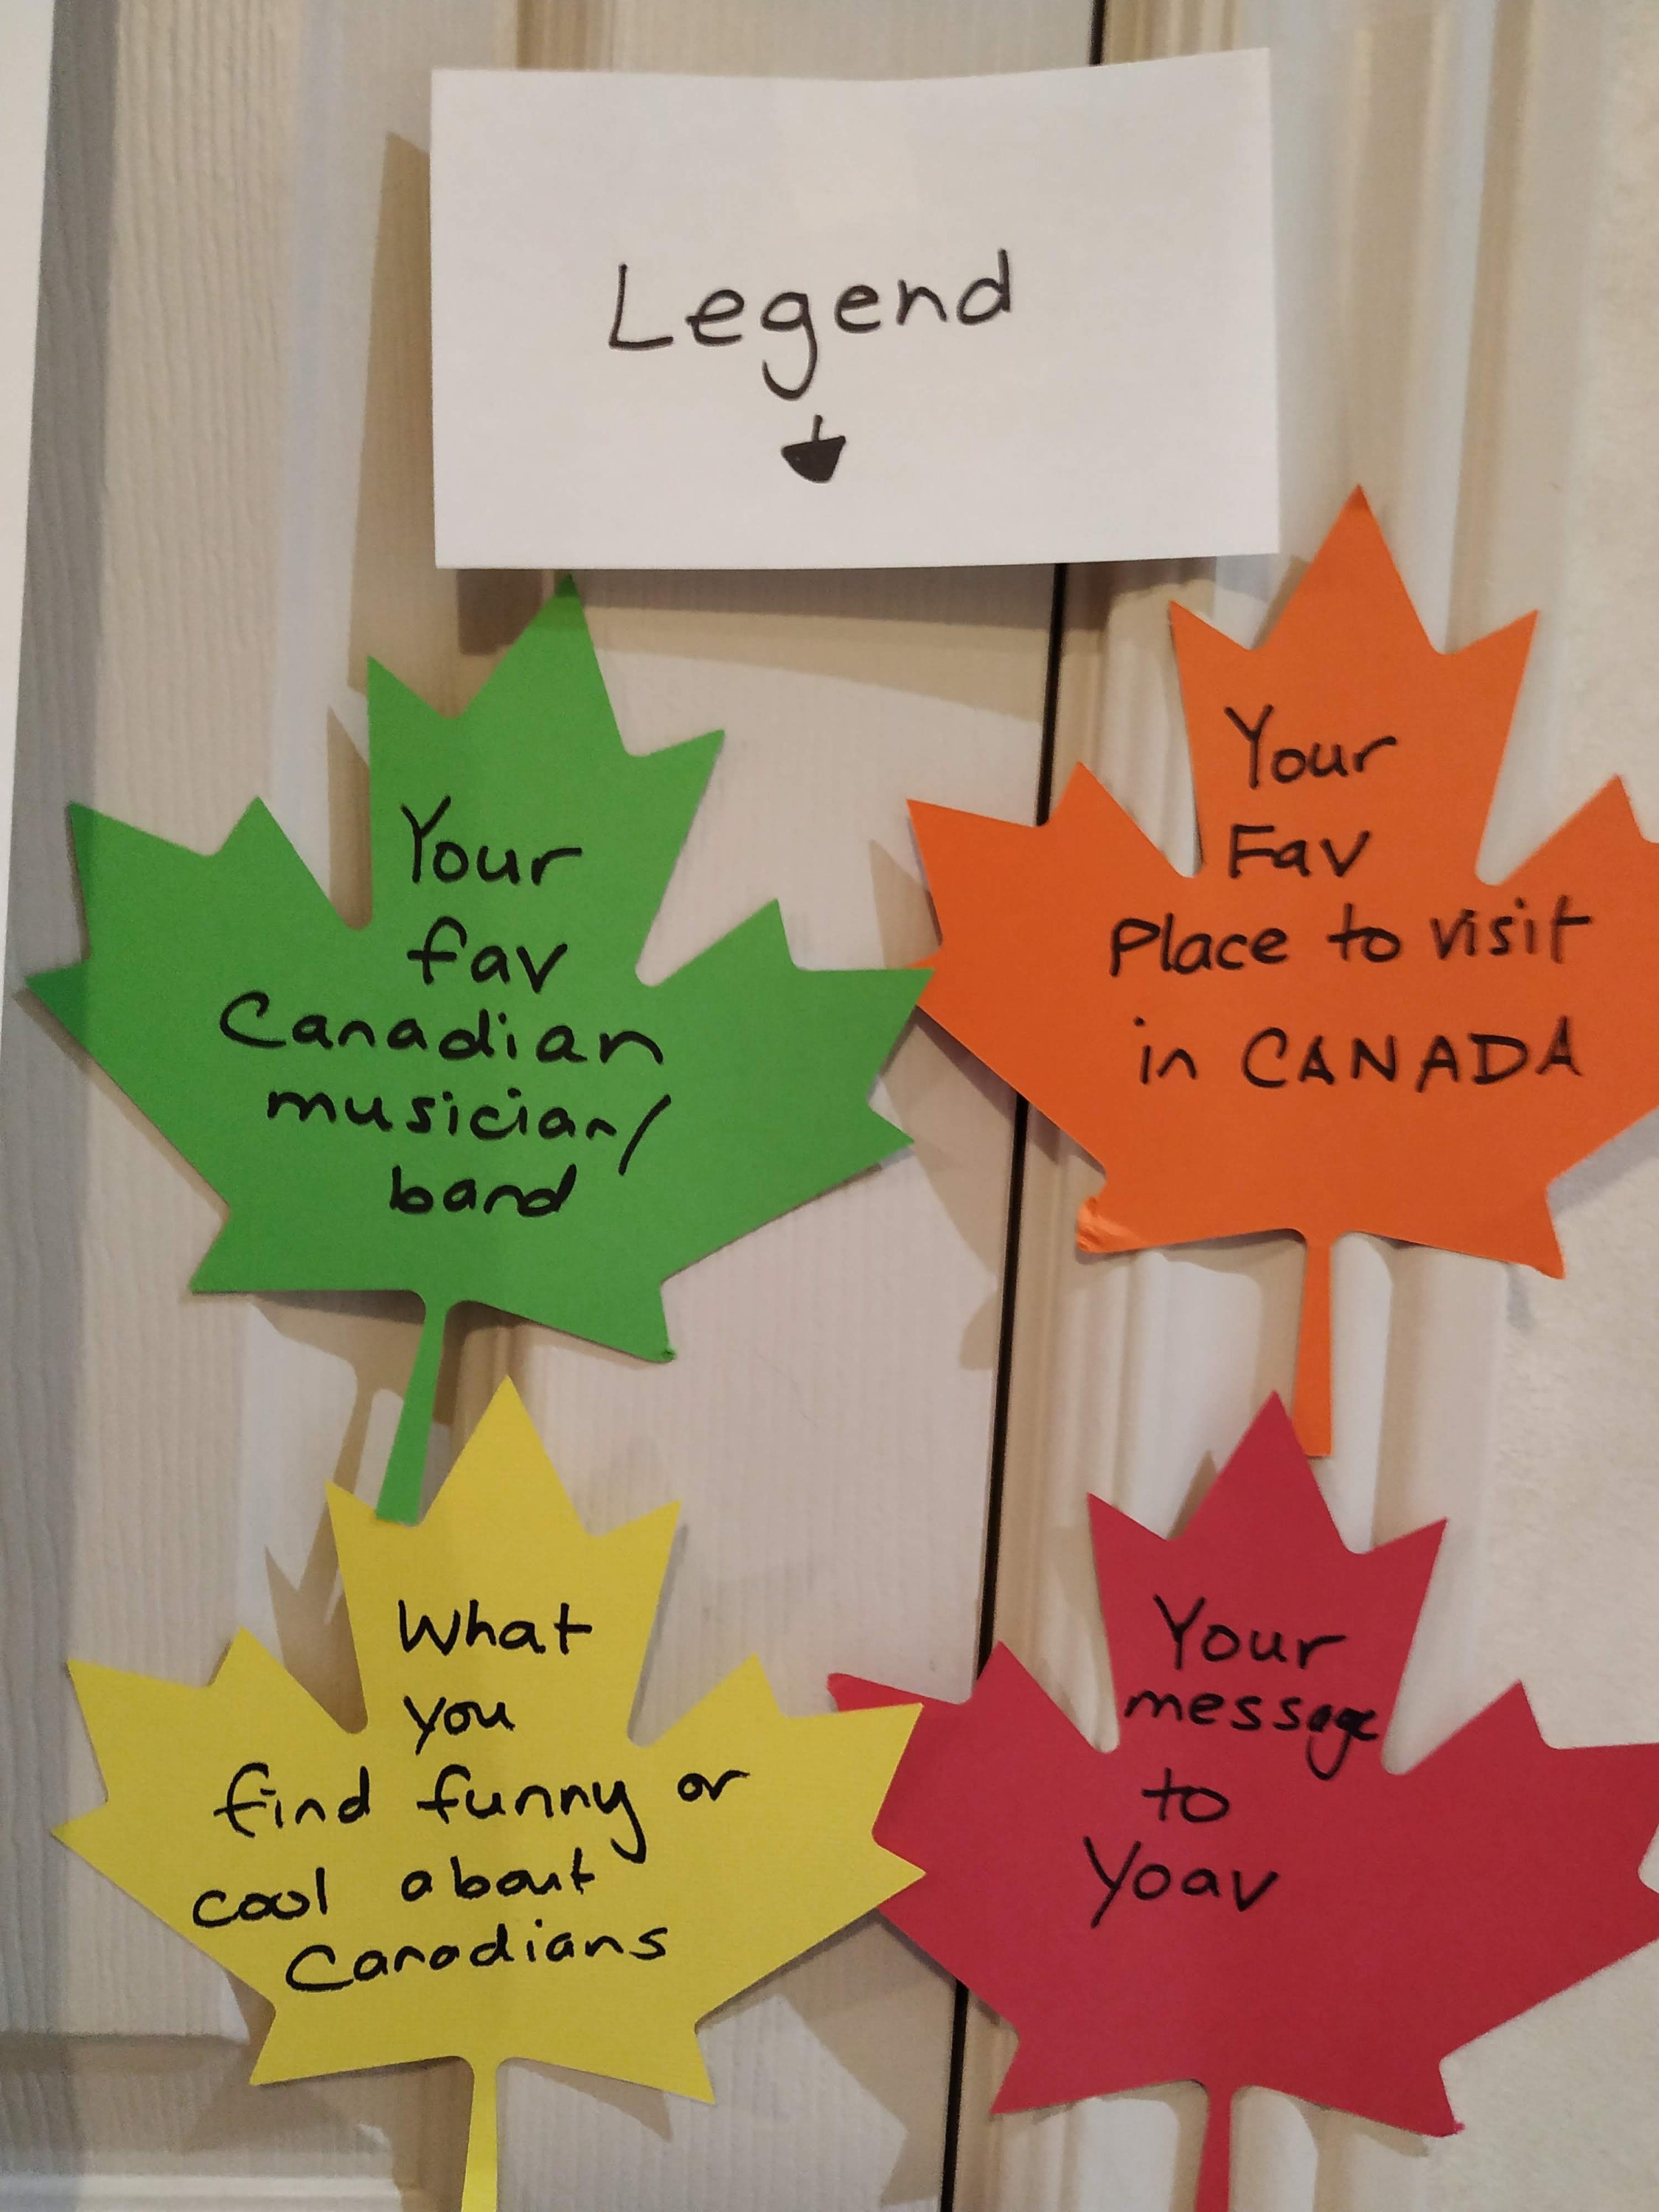 Legend
Your
fav
Canadian
musician/
band
Your
Fav
Place to visit
in CANADA
What
you
find funny or
cool about
Canadians
Your
message
to
Yoav